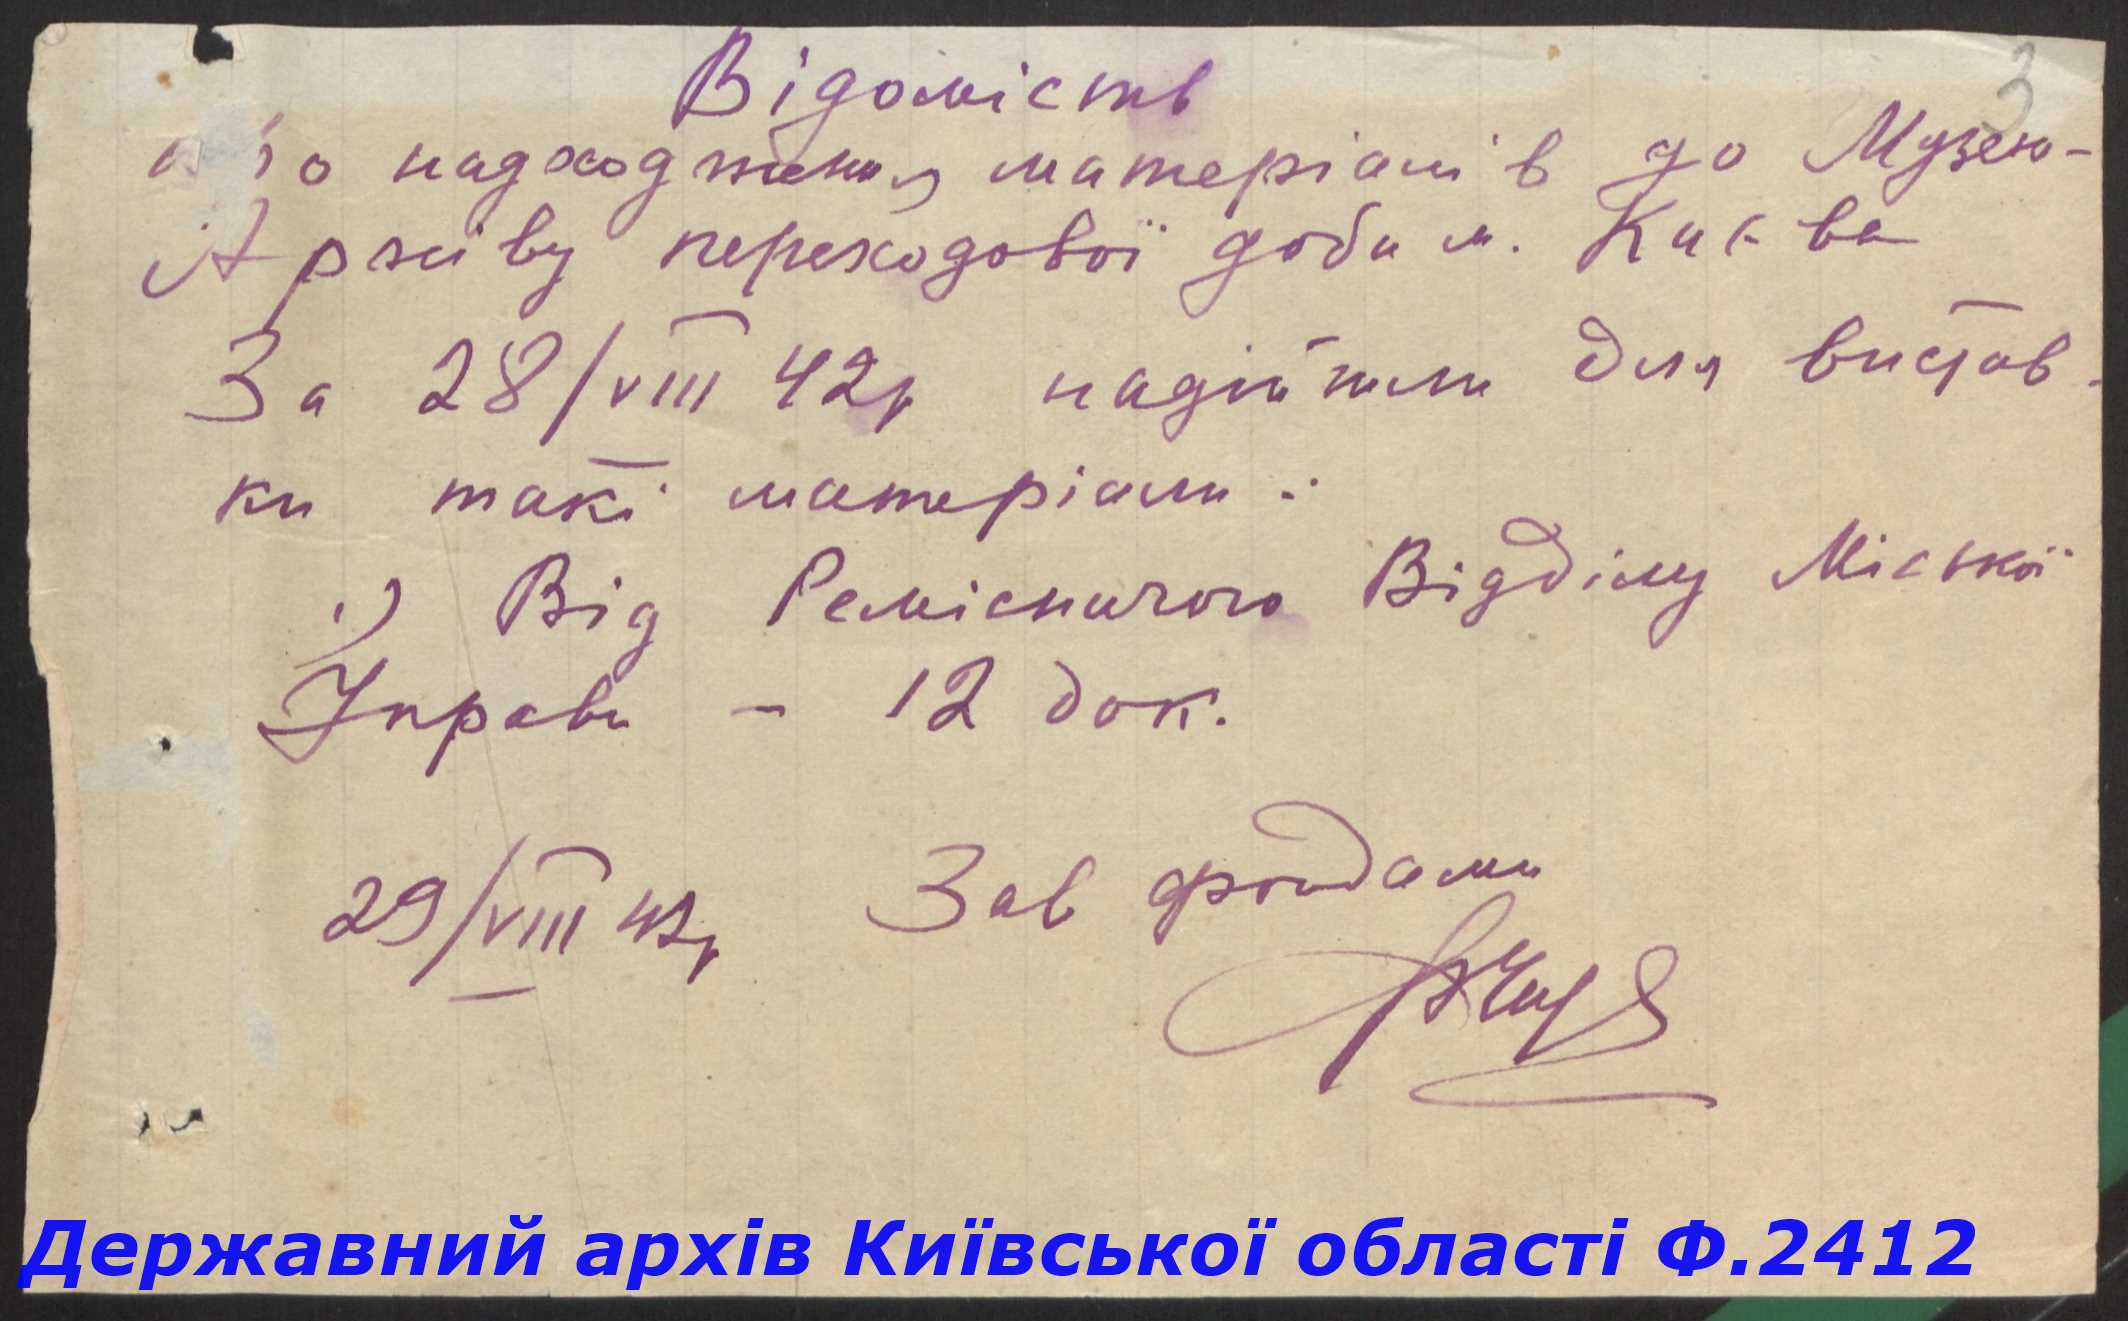 3
Відомість
про надходження матеріялів до Музею-
Архіву переходової доби м. Києва
За 28/VIII 42р надійшли для вистав-
ки такі матеріали:
1) Від Ремісничого Відділу Міської
Управи - 12 док.
29/VIII 42р Зав фондами
Державний архів Київської області Ф.2412